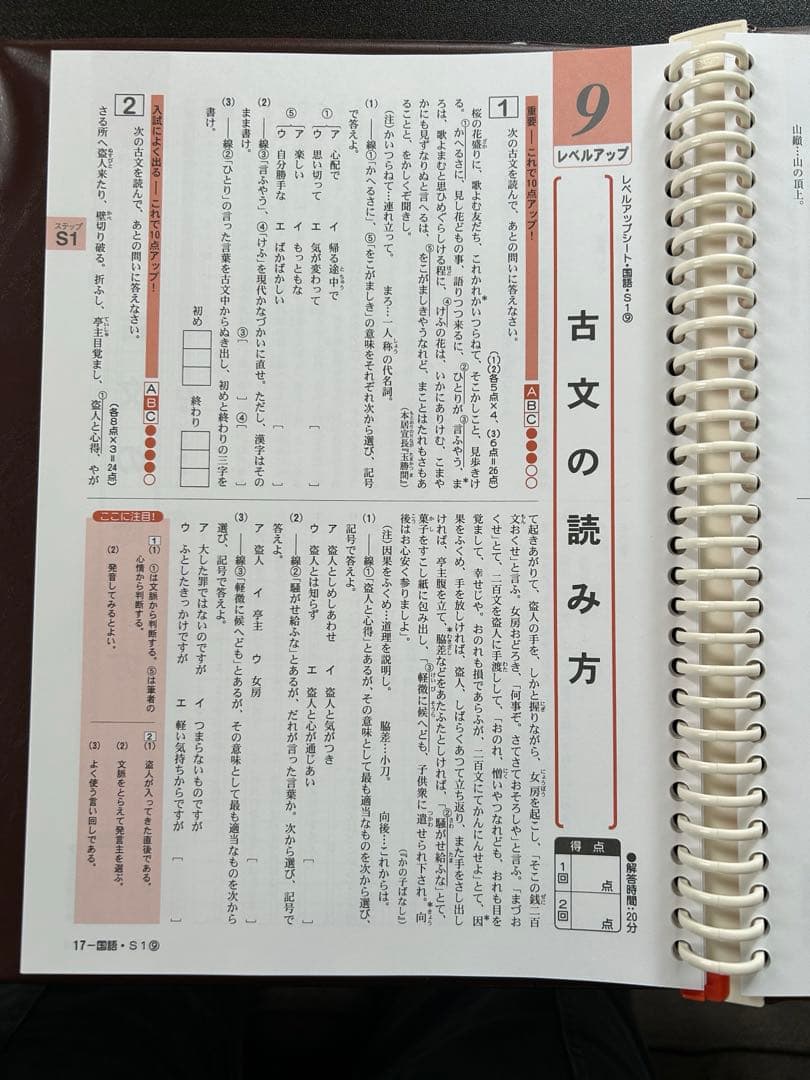 山巓…山の頂上。
レベルアップシート・国語・S1⑨
9
レベルアップ
古文の読み方
●解答時間：20分
得点
1回 点
2回 点
重要――これで10点アップ！
ABC●●●○○
1
次の古文を読んで、あとの問いに答えなさい。
((1)(2)各5点×4、(3)6点＝26点)
桜の花盛りに、歌よむ友だち、これかれかいつらねて、そこかしこと、見歩きけ
る。①かへるさに、見し花どもの事、語りつつ来るに、②ひとりが、③言ふやう、ま
ろは、歌よまむと思ひめぐらしける程に、④けふの花は、いかにありけむ、こまや
かにも見ずなりぬと言へるは、⑤をこがましきやうなれど、まことはたれもさもあ
ることと、をかしくぞ聞きし。
(本居宣長『玉勝間』)
(注)かいつらねて…連れ立って。 まろ…一人称の代名詞。
(1) ――線①「かへるさに」、⑤「をこがましき」の意味をそれぞれ次から選び、記号
で答えよ。
① ア 心配で イ 帰る途中で
ウ 思い切って エ 気が変わって [ ]
⑤ ア 楽しい イ もっともな
ウ 自分勝手な エ ばかばかしい [ ]
(2) ――線③「言ふやう」、④「けふ」を現代かなづかいに直せ。ただし、漢字はその
まま書け。
③[ ] ④[ ]
(3) ――線②「ひとり」の言った言葉を古文中からぬき出し、初めと終わりの三字を
書け。
初め 終わり
入試によく出る――これで10点アップ！
ABC●●●●○
2
次の古文を読んで、あとの問いに答えなさい。
(各8点×3＝24点)
さる所へ盗人来たり、壁切り破る。折ふし、亭主目覚まし、①盗人と心得、やが
て起きあがりて、盗人の手を、しかと握りながら、女房を起こし、「そこの銭二百
文おくせ」と言ふ。女房おどろき、「何事ぞ。さてさておそろしや」と言ふ。「まづお
くせ」とて、二百文を盗人に手渡しして、「おのれ、憎いやつなれども、おれも目を
覚まして、幸せじや。おのれも損であらふが、二百文にてかんにんせよ」とて、因
果をふくめ、手を放しければ、盗人、しばらくあつて立ち返り、また手をさし出し
ければ、亭主腹を立て、脇差などをあたふたとしければ、「②騒がせ給ふな」とて、
菓子をすこし紙に包み出し、「③軽微に候へども、子供衆に遣せられ下され。向
後はお心安く参りましよ」。
(『かの子ばなし』)
(注)因果をふくめ…道理を説明し。 脇差…小刀。 向後…これからは。
(1) ――線①「盗人と心得」とあるが、その意味として最も適当なものを次から選び、
記号で答えよ。
ア 盗人としめしあわせ イ 盗人と気がつき
ウ 盗人とは知らず エ 盗人と心が通じあい [ ]
(2) ――線②「騒がせ給ふな」とあるが、だれが言った言葉か。次から選び、記号で
答えよ。
ア 盗人 イ 亭主 ウ 女房 [ ]
(3) ――線③「軽微に候へども」とあるが、その意味として最も適当なものを次から
選び、記号で答えよ。
ア 大した罪ではないのですが イ つまらないものですが
ウ ふとしたきっかけですが エ 軽い気持ちからですが [ ]
ここに注目！
1
(1) ①は文脈から判断する。⑤は筆者の
心情から判断する。
(2) 発音してみるとよい。
2
(1) 盗人が入ってきた直後である。
(2) 文脈をとらえて発言主を選ぶ。
(3) よく使う言い回しである。
ステップ
S1
17－国語・S1⑨